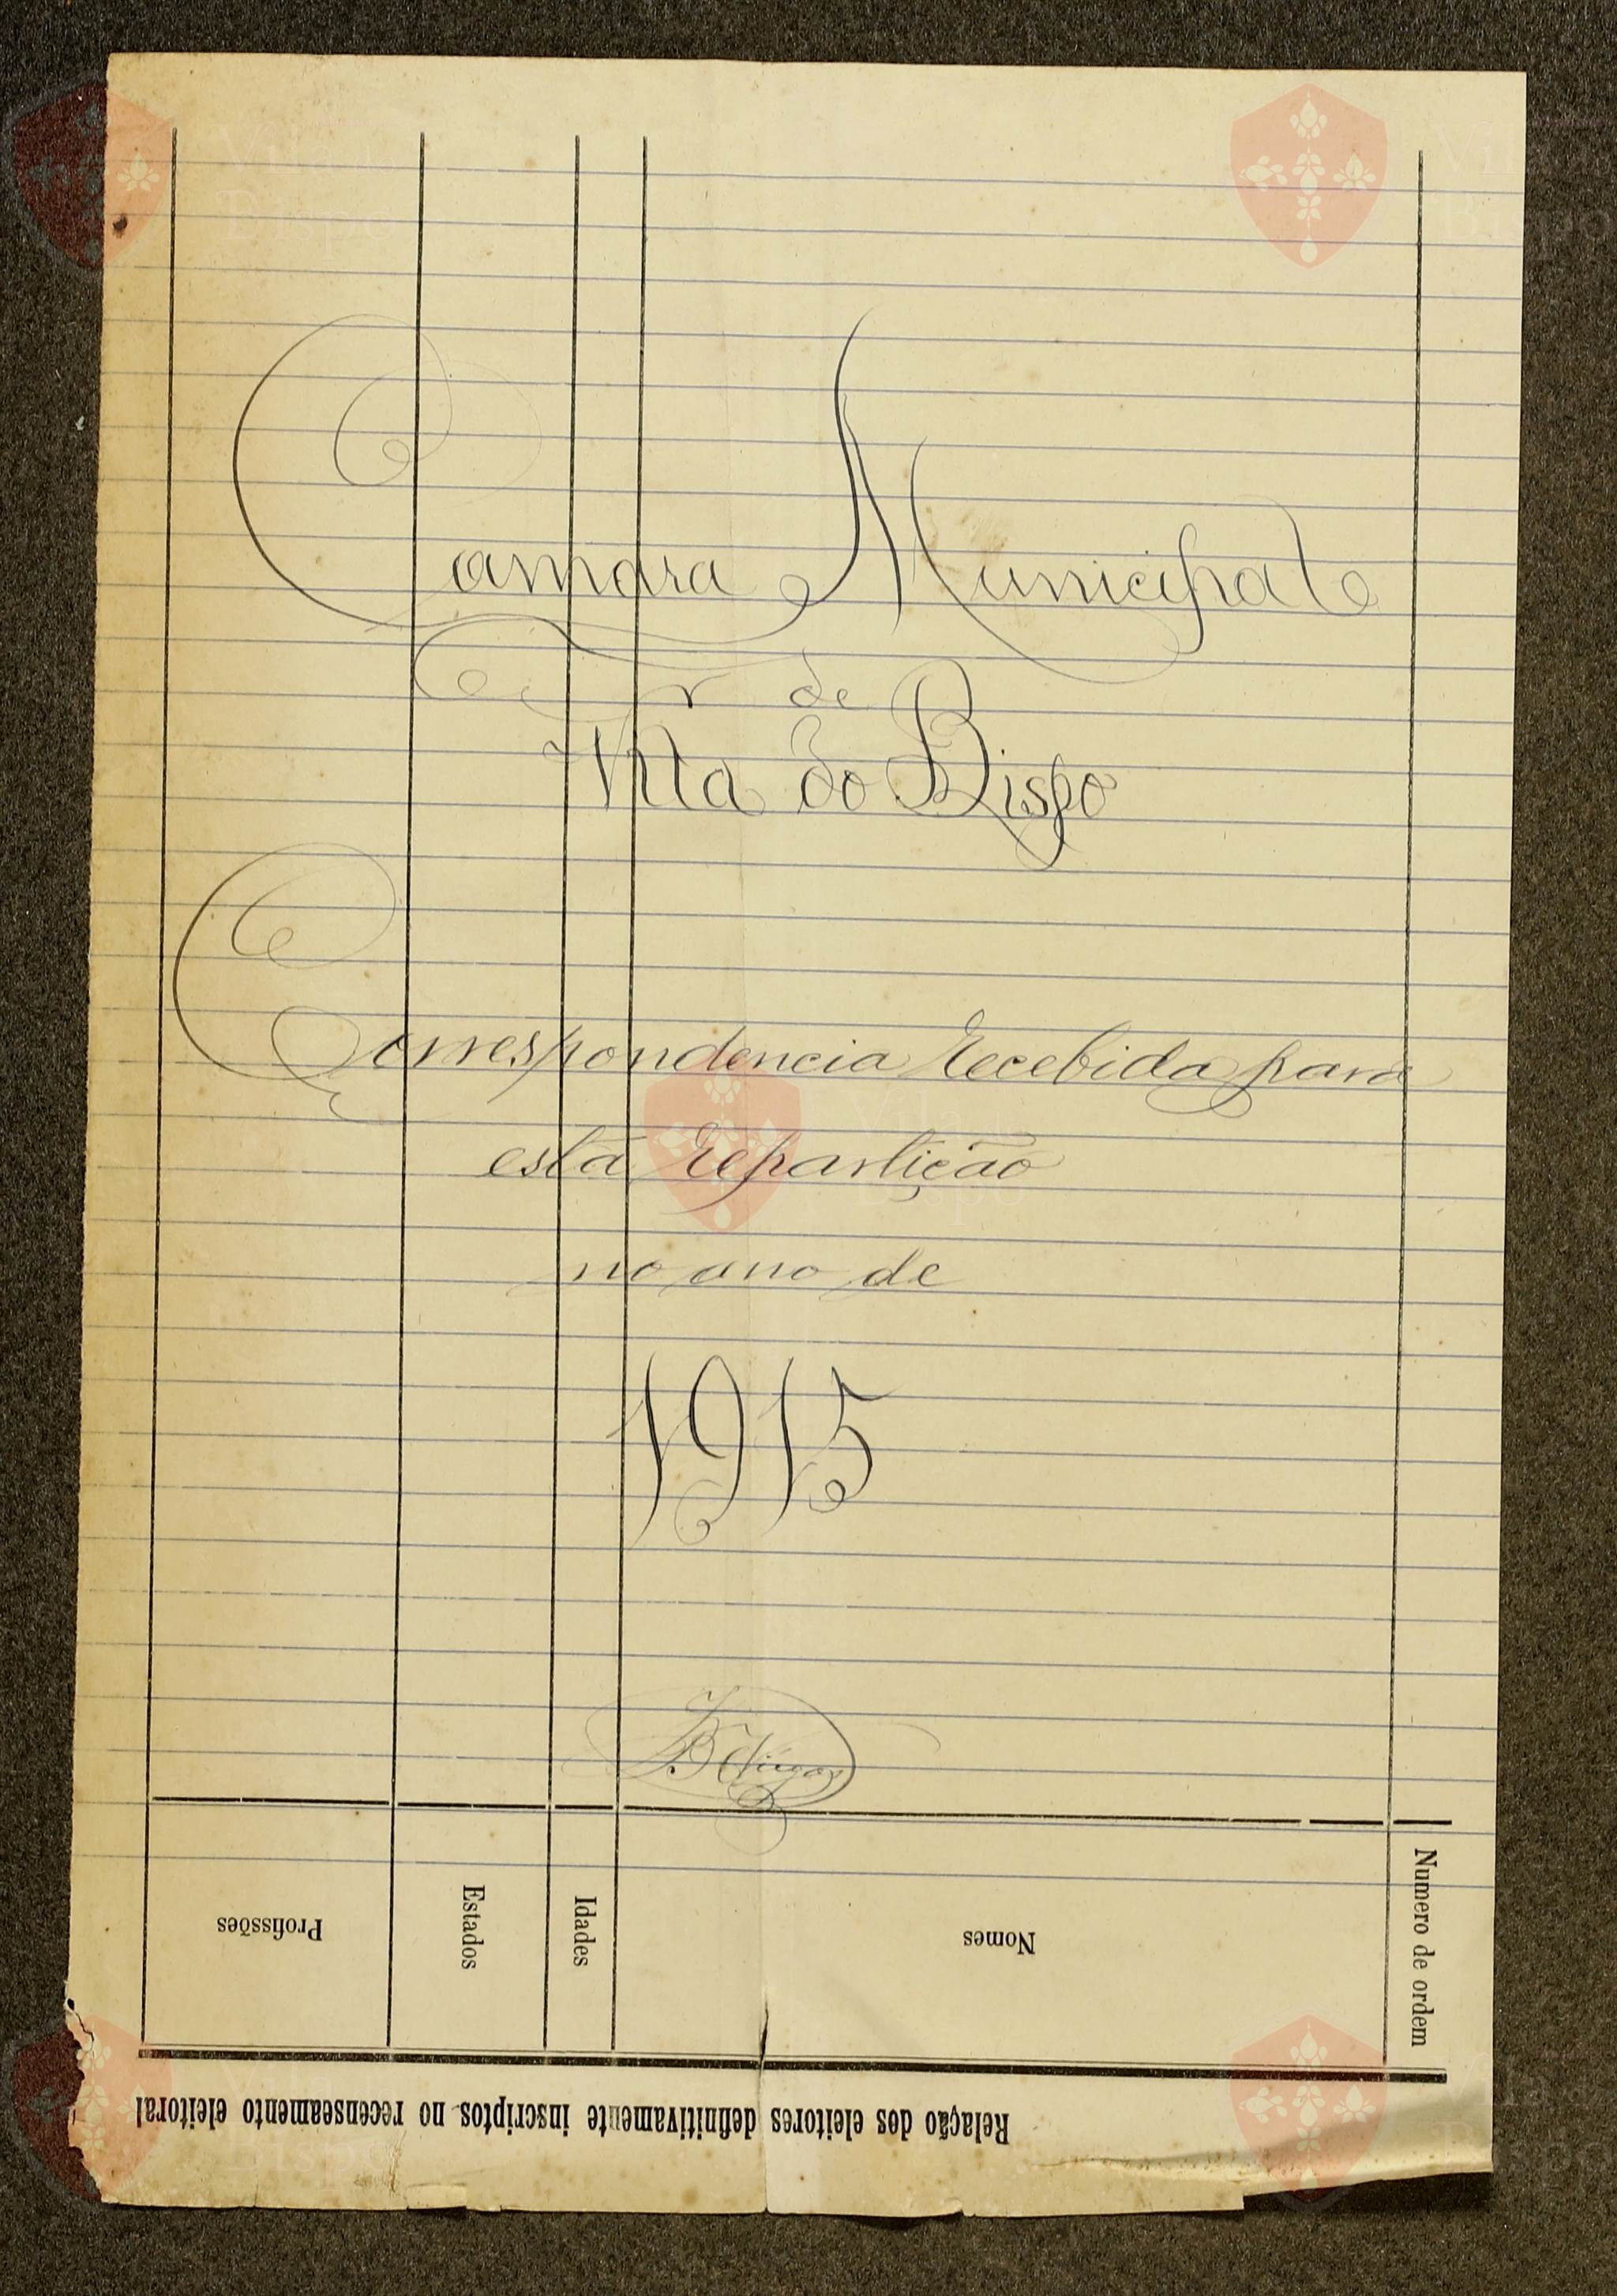 Camara Municipal
de
Vila do Bispo
Correspondencia recebida para
esta repartição
no ano de
1915
Profissões
Estados
Idades
Nomes
Numero de ordem
Relação dos eleitores definitivamente inscriptos no recenseamento eleitoral
Vila do
Bispo